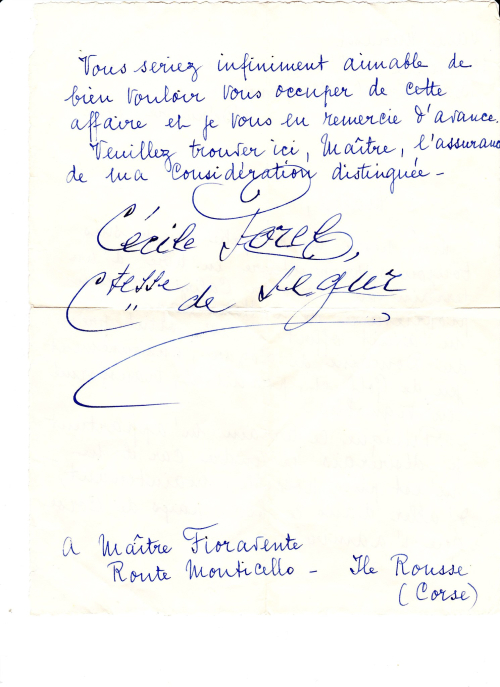 Vous seriez infiniment aimable de
bien vouloir vous occuper de cette
affaire et je vous en remercie d'avance.
Veuillez trouver ici, Maître, l'assuranc
de ma Considération distinguée -
Cécile Sorel,
Ctesse de Ségur
A Maître Fioravente
Route Monticello - Ile Rousse
(Corse)